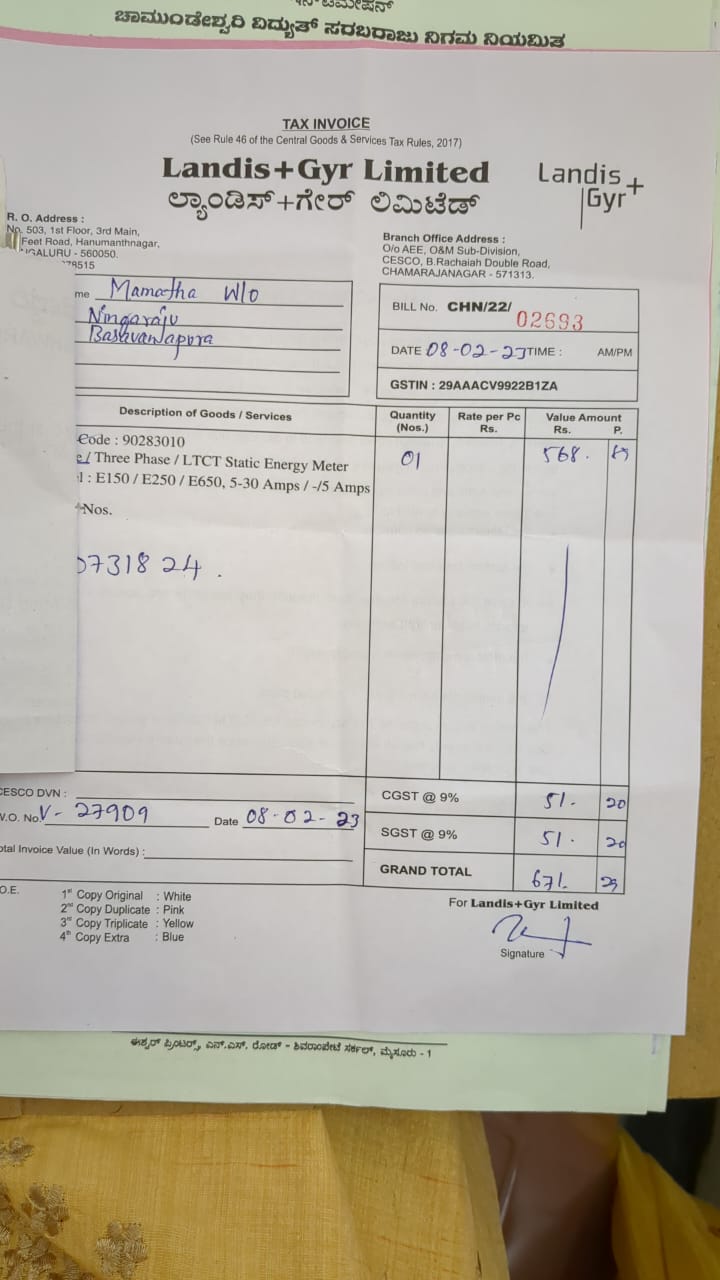 ಚಾಮುಂಡೇಶ್ವರಿ ವಿದ್ಯುತ್ ಸರಬರಾಜು ನಿಗಮ ನಿಯಮಿತ
TAX INVOICE
(See Rule 46 of the Central Goods & Services Tax Rules, 2017)
Landis+Gyr Limited
ಲ್ಯಾಂಡಿಸ್+ಗೇರ್ ಲಿಮಿಟೆಡ್
Landis+
Gyr
R. O. Address :
No. 503, 1st Floor, 3rd Main,
Feet Road, Hanumanthnagar,
- 560050.
78515
Branch Office Address :
O/o AEE, O&M Sub-Division,
CESCO, B.Rachaiah Double Road,
CHAMARAJANAGAR - 571313.
Mamatha W/o
Ningaraju
Basavanapura
BILL No. CHN/22/ 02693
DATE 08-02-23 TIME : AM/PM
GSTIN : 29AAACV9922B1ZA
Description of Goods / Services Quantity (Nos.) Rate per Pc Rs. Value Amount Rs. P.
Code : 90283010
/ Three Phase / LTCT Static Energy Meter 01 568.
: E150 / E250 / E650, 5-30 Amps / -/5 Amps
Nos.
731824.
CGST @ 9% 51. 20
SGST @ 9% 51. 20
GRAND TOTAL 671.
CESCO DVN :
V.O. No. V- 27909 Date 08-02-23
Invoice Value (In Words) :
O.E.
1st Copy Original : White
2nd Copy Duplicate : Pink
3rd Copy Triplicate : Yellow
4th Copy Extra : Blue
For Landis+Gyr Limited
Signature
ಈಶ್ವರ್ ಪ್ರಿಂಟರ್ಸ್, ಎನ್.ಎಸ್. ರೋಡ್ - ಶಿವರಾಂಪೇಟೆ ಸರ್ಕಲ್, ಮೈಸೂರು - 1